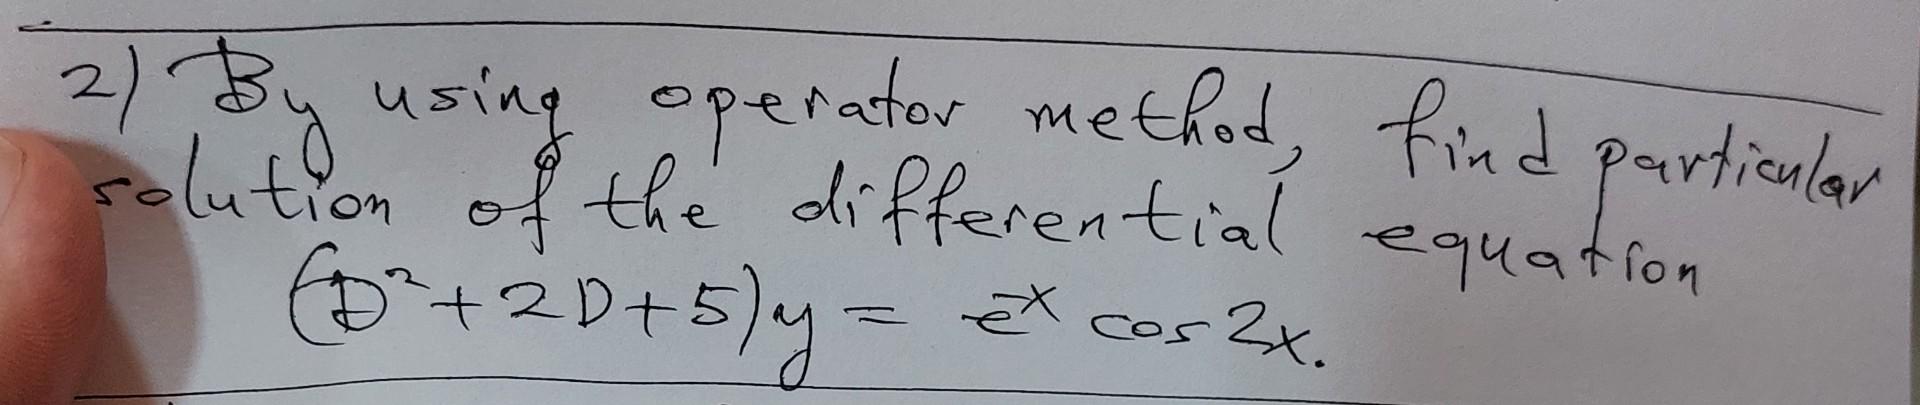 2) By using operator method, find particular
solution of the differential equation
(D²+2D+5)y = e⁻ˣ cos 2x.